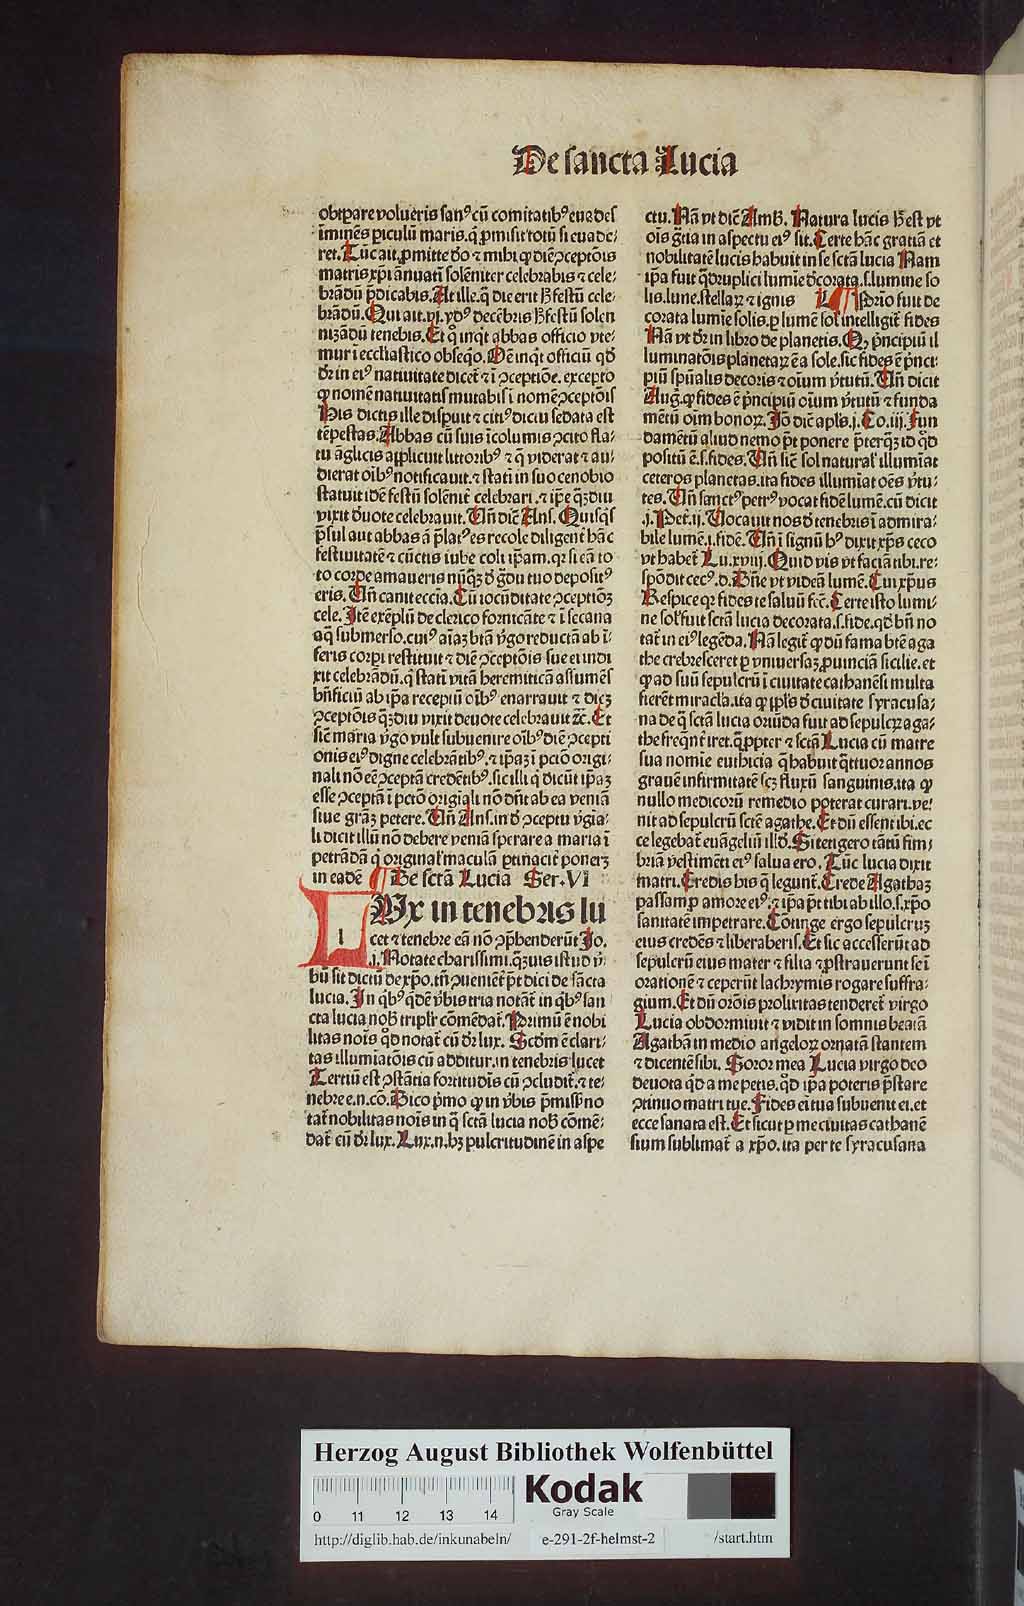 De sancta Lucia
obtꝑare volueris sanꝰ cū comitatibꝰ euades
īminēs ꝑiculū maris. q̄ ꝓmisit totū si euade-
ret. Tūc ait. ꝓmitte dō ⁊ mihi ꝙ diē ꝯceptōis
matris xp̄i ānuatī solēniter celebrabis ⁊ cele-
brādū p̄dicabis. At ille. q̄ die erit hͦ festū cele-
brādū. Qui ait. vj. ydꝰ decēbris hͦ festū solen
nizādū tenebis. Et qͦ inqͥt abbas officio vte-
mur ī ecclīastico obseq̄o. Oē inqͥt officiū qd̄
dr̄ in eiꝰ natiuitate dicet̄ ⁊ ī ꝯceptiōe. excepto
ꝙ nomē natiuitatis mutabis ī nomē ꝯceptōis
His dictis ille disꝑuit ⁊ citiꝰ dictu sedata est
tēpestas. Abbas cū suis īcolumis ꝯcito fla-
tu āglicis applicuit littoribꝰ ⁊ q̄ viderat ⁊ au-
dierat oībꝰ notificauit. ⁊ statī in suo cenobio
statuit idē festū solēnit̄ celebrari. ⁊ ip̄e qʒdiu
vixit deuote celebrauit. Un̄ dicit Ans. Quisqͥs
p̄sul aut abbas ā p̄latꝰ es recole diligent̄ hāc
festiuitatē ⁊ cūctis iube coli ip̄am. qꝛ si eā to
to corde amaueris nūqʒ d̄ gͣdu tuo depositꝰ
eris. Un̄ canit ecc̄ia. Cū iocūditate ꝯceptiōʒ
cele. Itē exēplū de clerico fornicāte ⁊ ī secana
aq̄ submerso. cuiꝰ aīaʒ btā v̓go reductā ab ī-
feris corꝑi restituit ⁊ diē ꝯceptōis sue ei indi
xit celebrādū. qͥ statī vitā heremiticā assumēs
bn̄ficiū ab ip̄a receptū oībꝰ enarrauit ⁊ dieʒ
ꝯceptōis qʒdiu vixit deuote celebrauit ⁊c̄. Et
sic̄ maria v̓go vult subuenire oībꝰ diē ꝯcepti
onis eiꝰ digne celebrātibꝰ. ⁊ ip̄aʒ ī pctō origi-
nali nō eē ꝯceptā credētibꝰ. sic illi qͥ dicūt ip̄aʒ
esse ꝯceptā ī pctō origīali nō dn̄t ab ea veniā
siue grāʒ petere. Un̄ Ans. in d̄ ꝯceptu v̓gīa-
li dicit illū nō debere veniā sperare a maria ī
petrādā qͥ originat̄ maculā ꝑtinacit̄ ponerʒ
in eadē ¶ De sctā Lucia Ser. VI
LUx in tenebris lu
cet ⁊ tenebre eā nō ꝯp̄henderūt Jo.
j. Notate charissimi. qʒuis istud v̓-
bū sit dictū de xp̄o. tn̄ ꝯueniēt̄ p̄t dici de sācta
lucia. In qͥbꝰ qͥdē v̓bis tria notāt̄ in qͥbꝰ san
cta lucia nob̄ triplr̄ cōmēdat̄. Primū ē nobi
litas noīs qd̄ notat̄ cū dr̄ lux. Scdm̄ ē clari-
tas illumiatōis cū additur. in tenebris lucet
Tertiū est ꝯstātia fortitudīs cū ꝯcludit̄. ⁊ te-
nebre e. n. cō. Dico pͥmo ꝙ in v̓bis p̄missͥ no
tat̄ nobilitas noīs in q̄ sctā lucia nob̄ cōmē-
dat̄ cū dr̄ lux. Lux. n. hʒ pulcritudinē in aspe
ctu. Nā vt dic̄ Amb. Natura lucis hͦ est vt
oīs grā̄ in aspectu eiꝰ sit. Certe hāc gratiā et
nobilitatē lucis habuit in se sctā lucia Nam
ip̄a fuit qͣdruplici lumīe decorata. s. lumine so
lis. lune. stellaꝝ ⁊ ignis ¶ Prīo fuit de
corata lumīe solis. ꝑ lumē sol̓ intelligit̄ fides
Nā vt dr̄ in libro de planetis. Qʒ pͥncipiū il
luminatōis planetaꝝ ē a sole. sic fides ē pͥnci-
piū spūalis decoris ⁊ oīum v̓tutū. Un̄ dicit
Aug. ꝙ fides ē pͥncipiū oīum v̓tutū ⁊ funda
mētū oīm bonoꝝ. Jō dic̄ apl̓s. j. Co. iij. Fun
damētū aliud nemo p̄t ponere p̄terqʒ id qd̄
positū ē. s. fides. Un̄ sic̄ sol natural̓ illumīat
ceteros planetas. ita fides illumīat oēs v̓tu-
tes. Un̄ sanctꝰ petrꝰ vocat fidē lumē. cū dicit
.j. Pet. ij. Uocauit nos d̄ tenebris ī admira-
bile lumē. i. fidē. Un̄ ī signū hꝰ dixit xp̄s ceco
vt habet̄ Lu. xviij. Quid vis vt faciā tibi. re-
spōdit cecꝰ. d. Dn̄e vt videā lumē. Cui xp̄us
Respice qꝛ fides te saluū fec̄. Certe isto lumi-
ne sol̓ fuit sctā lucia decorata. s. fide. qd̄ bn̄ no
tat̄ in eiꝰ legēda. Nā legit̄ ꝙ dū fama btē aga
the crebresceret ꝑ vniuersaʒ ꝓuinciā sicilie. et
ꝙ ad suū sepulcrū ī ciuitate cathanēsi multa
fierēt miracl̓a. ita ꝙ ip̄s d̄ ciuitate syracusa-
na de q̄ sctā lucia oriūda fuit ad sepulcꝝ aga-
the freqͣnt̄ iret. q̄ꝓpter ⁊ sctā Lucia cū matre
sua nomīe euthicia q̄ habuit qͣttuor annos
grauē infirmitatē scʒ fluxū sanguinis. ita ꝙ
nullo medicorū remedio poterat curari. ve-
nit ad sepulcrū sctē agathe. Et dū essent ibi. ec
ce legebat̄ euāgeliū illd̄. Si tetigero tātū fim-
briā vestimēti eiꝰ salua ero. Tūc lucia dixit
matri. Credis his q̄ legunt̄. Crede Agathaʒ
passam ꝓ amore eiꝰ. ⁊ ip̄a p̄t tibi ab illo. s. xp̄o
sanitatē impetrare. Cōtinge ergo sepulcruʒ
eius credēs ⁊ liberaberis. Et sic accesserūt ad
sepulcrū eius mater ⁊ filia ⁊ ꝓstrauerunt se ī
orationē ⁊ ceperūt lachrymis rogare suffra-
gium. Et dū orōis prolixitas tenderet̄ virgo
Lucia obdormiuit ⁊ vidit in somnis beatā
Agathā in medio angeloꝝ ornatā stantem
⁊ dicentē sibi. Soror mea Lucia virgo deo
deuota qd̄ a me petis. qd̄ ip̄a poteris p̄stare
ꝯtinuo matri tue. Fides ei tua subuenit ei. et
ecce sanata est. Et sicut ꝑ me ciuitas cathanē
sium sublimat̄ a xp̄o. ita per te syracusana
Herzog August Bibliothek Wolfenbüttel
Kodak
Gray Scale
0 11 12 13 14
http://diglib.hab.de/inkunabeln/ e-291-2f-helmst-2 /start.htm